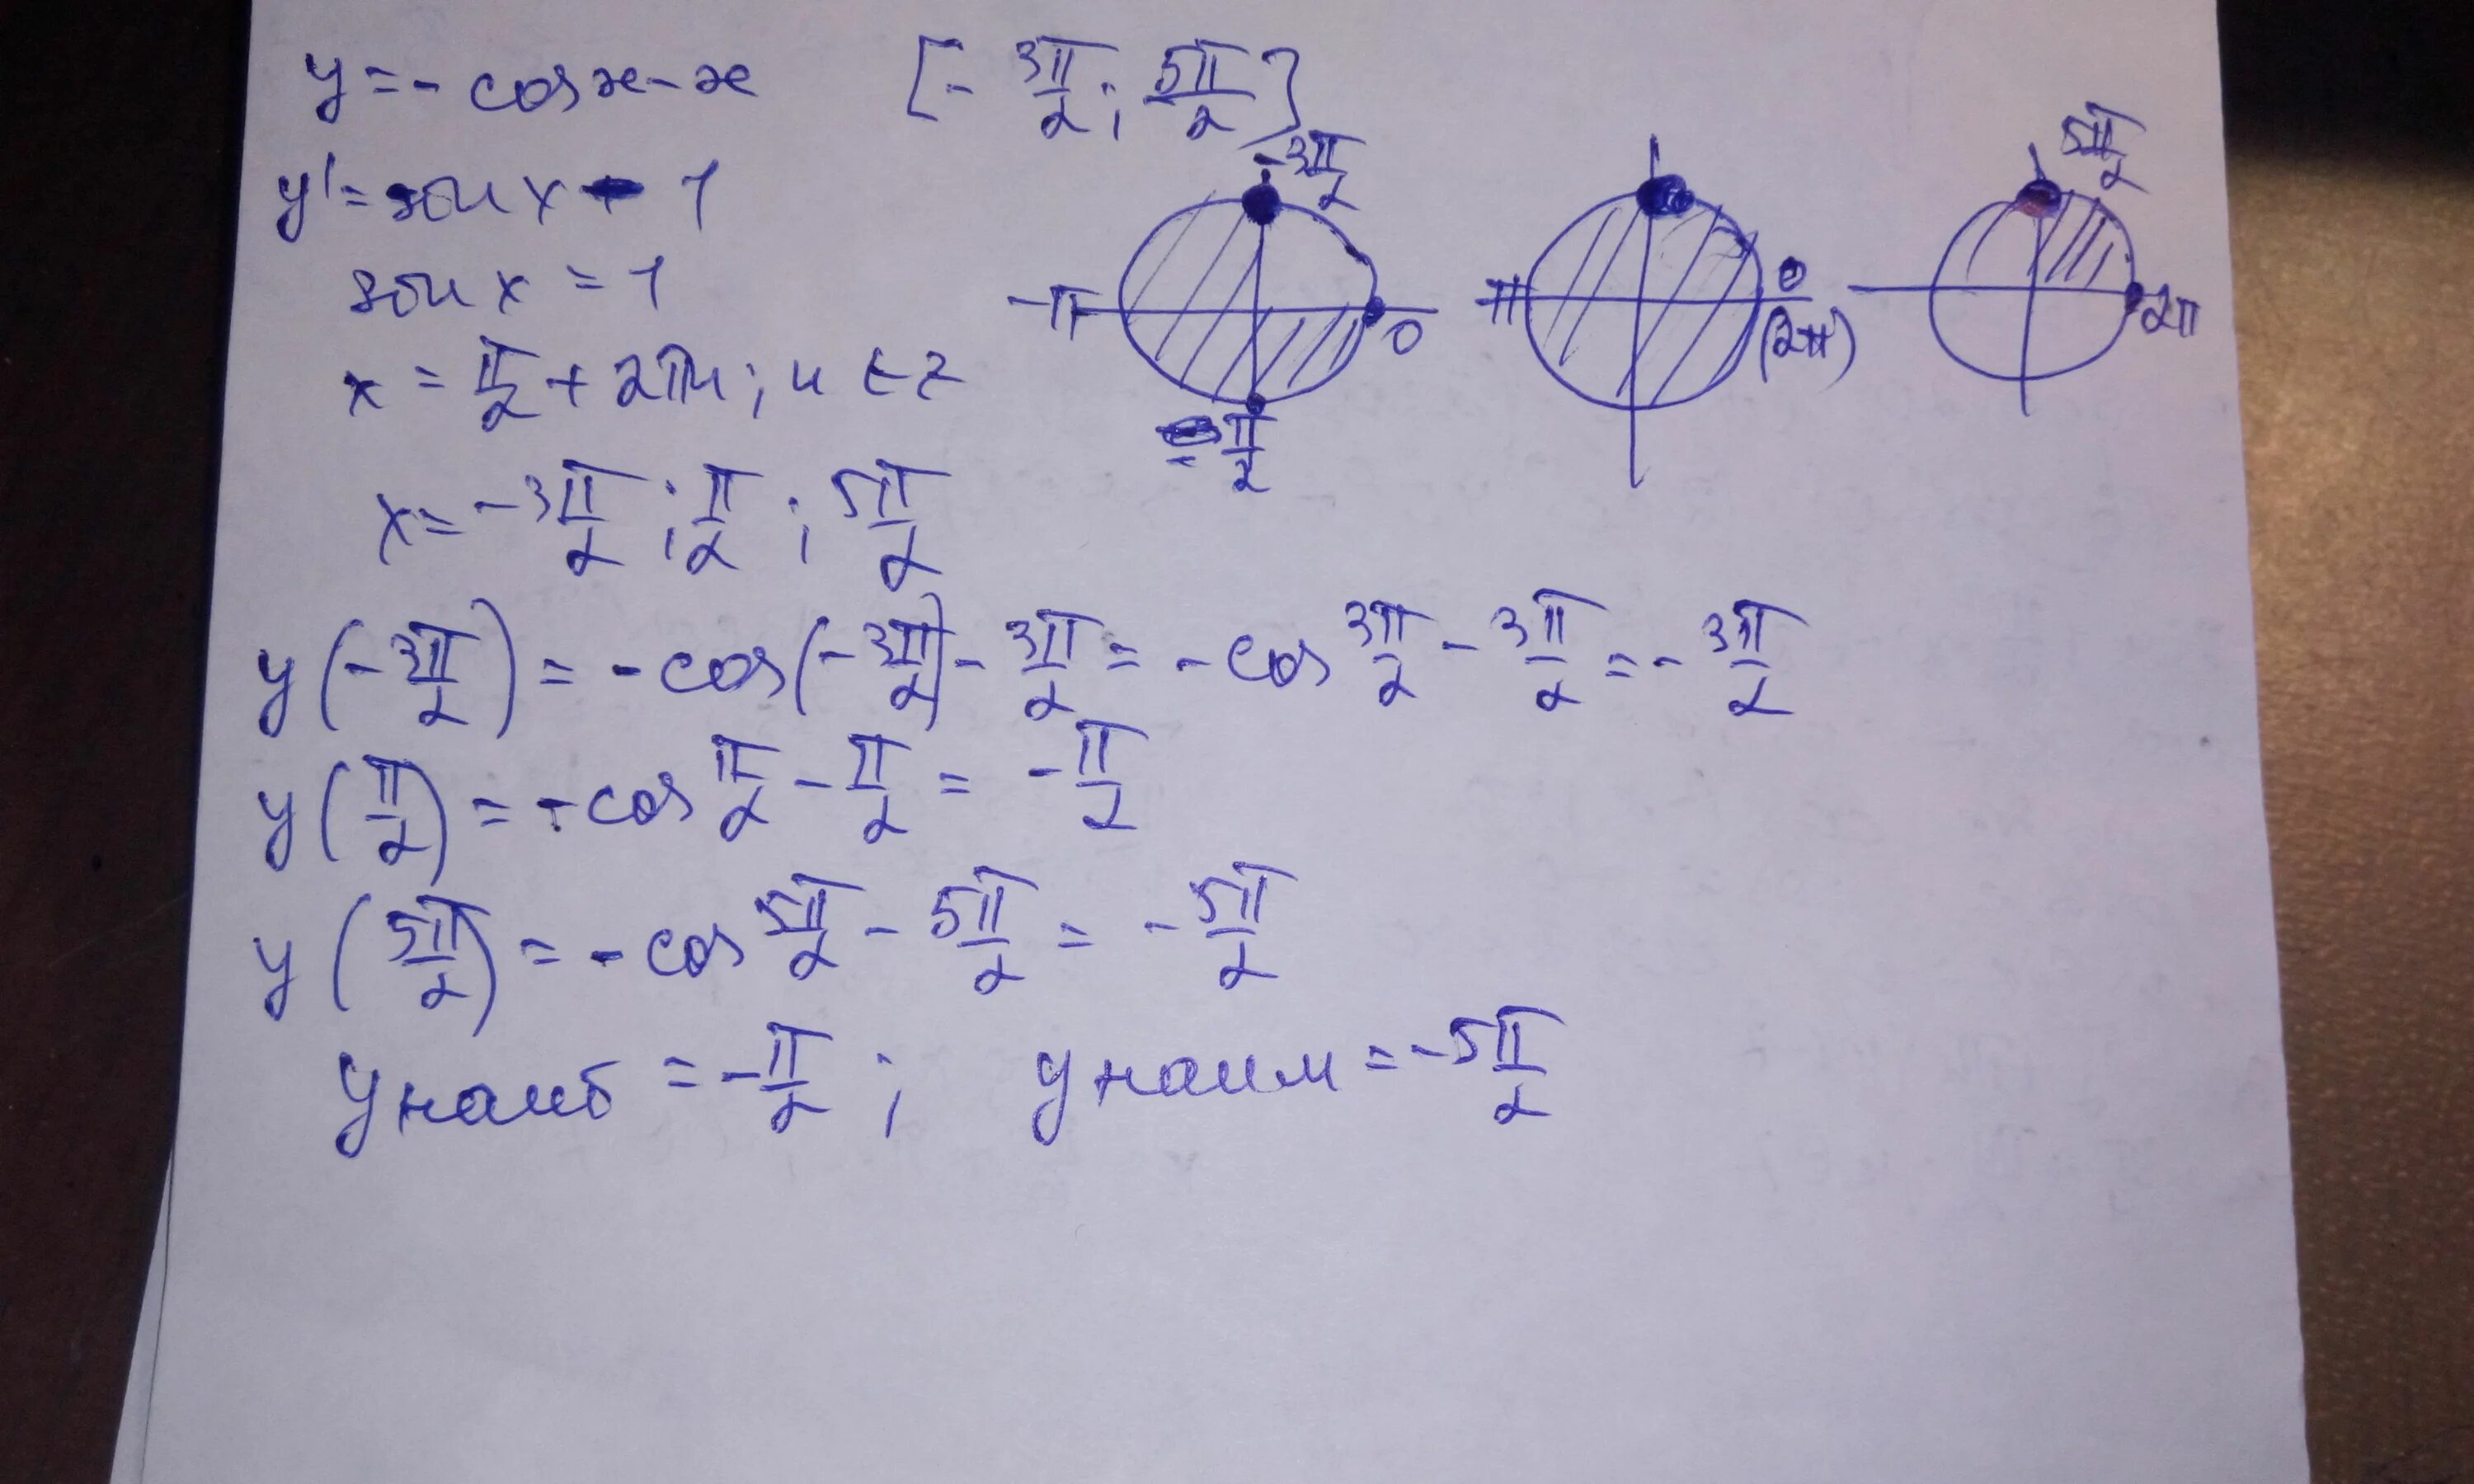 y = - cos x - x [- 3π/2 ; 5π/2]
y' = sin x - 1
sin x = 1
x = π/2 + 2πn; n ∈ z
x = - 3π/2 ; π/2 ; 5π/2
-3π/2 -π 0 -π/2
π 0 (2π)
5π/2 2π
y(- 3π/2) = - cos(- 3π/2) - 3π/2 = - cos 3π/2 - 3π/2 = - 3π/2
y(π/2) = - cos π/2 - π/2 = - π/2
y(5π/2) = - cos 5π/2 - 5π/2 = - 5π/2
y наиб = - π/2 ; y наим = - 5π/2